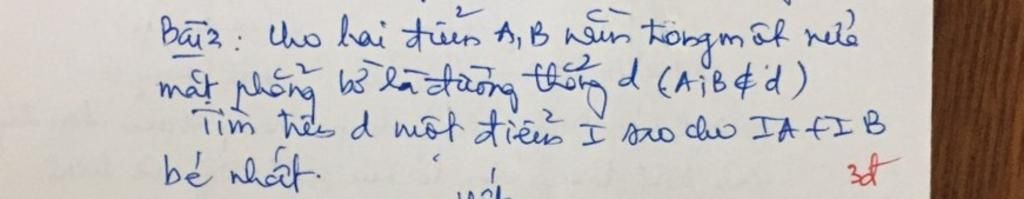 Bài 2: Cho hai điểm A, B nằm trong một nửa
mặt phẳng bờ là đường thẳng d (A; B ∉ d)
Tìm trên d một điểm I sao cho IA + IB
bé nhất.
3đ